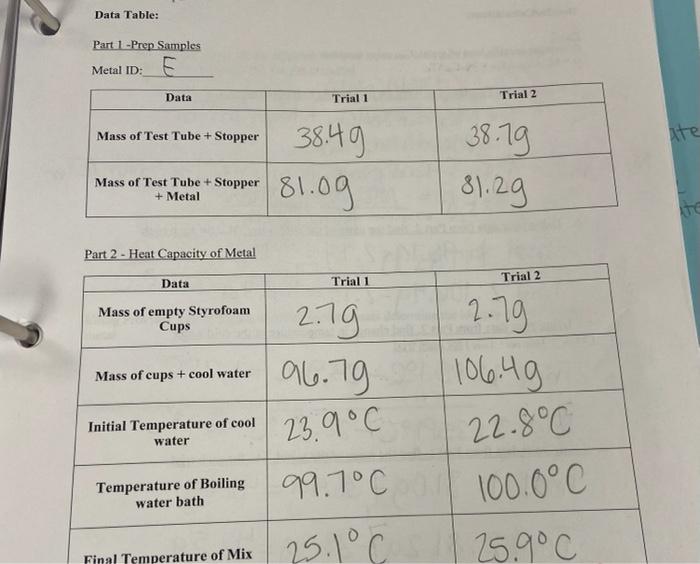 Data Table:
Part 1 -Prep Samples
Metal ID: E
Data Trial 1 Trial 2
Mass of Test Tube + Stopper 38.4g 38.7g
Mass of Test Tube + Stopper + Metal 81.0g 81.2g
Part 2 - Heat Capacity of Metal
Data Trial 1 Trial 2
Mass of empty Styrofoam Cups 2.7g 2.7g
Mass of cups + cool water 96.7g 106.4g
Initial Temperature of cool water 23.9°C 22.8°C
Temperature of Boiling water bath 99.7°C 100.0°C
Final Temperature of Mix 25.1°C 25.9°C